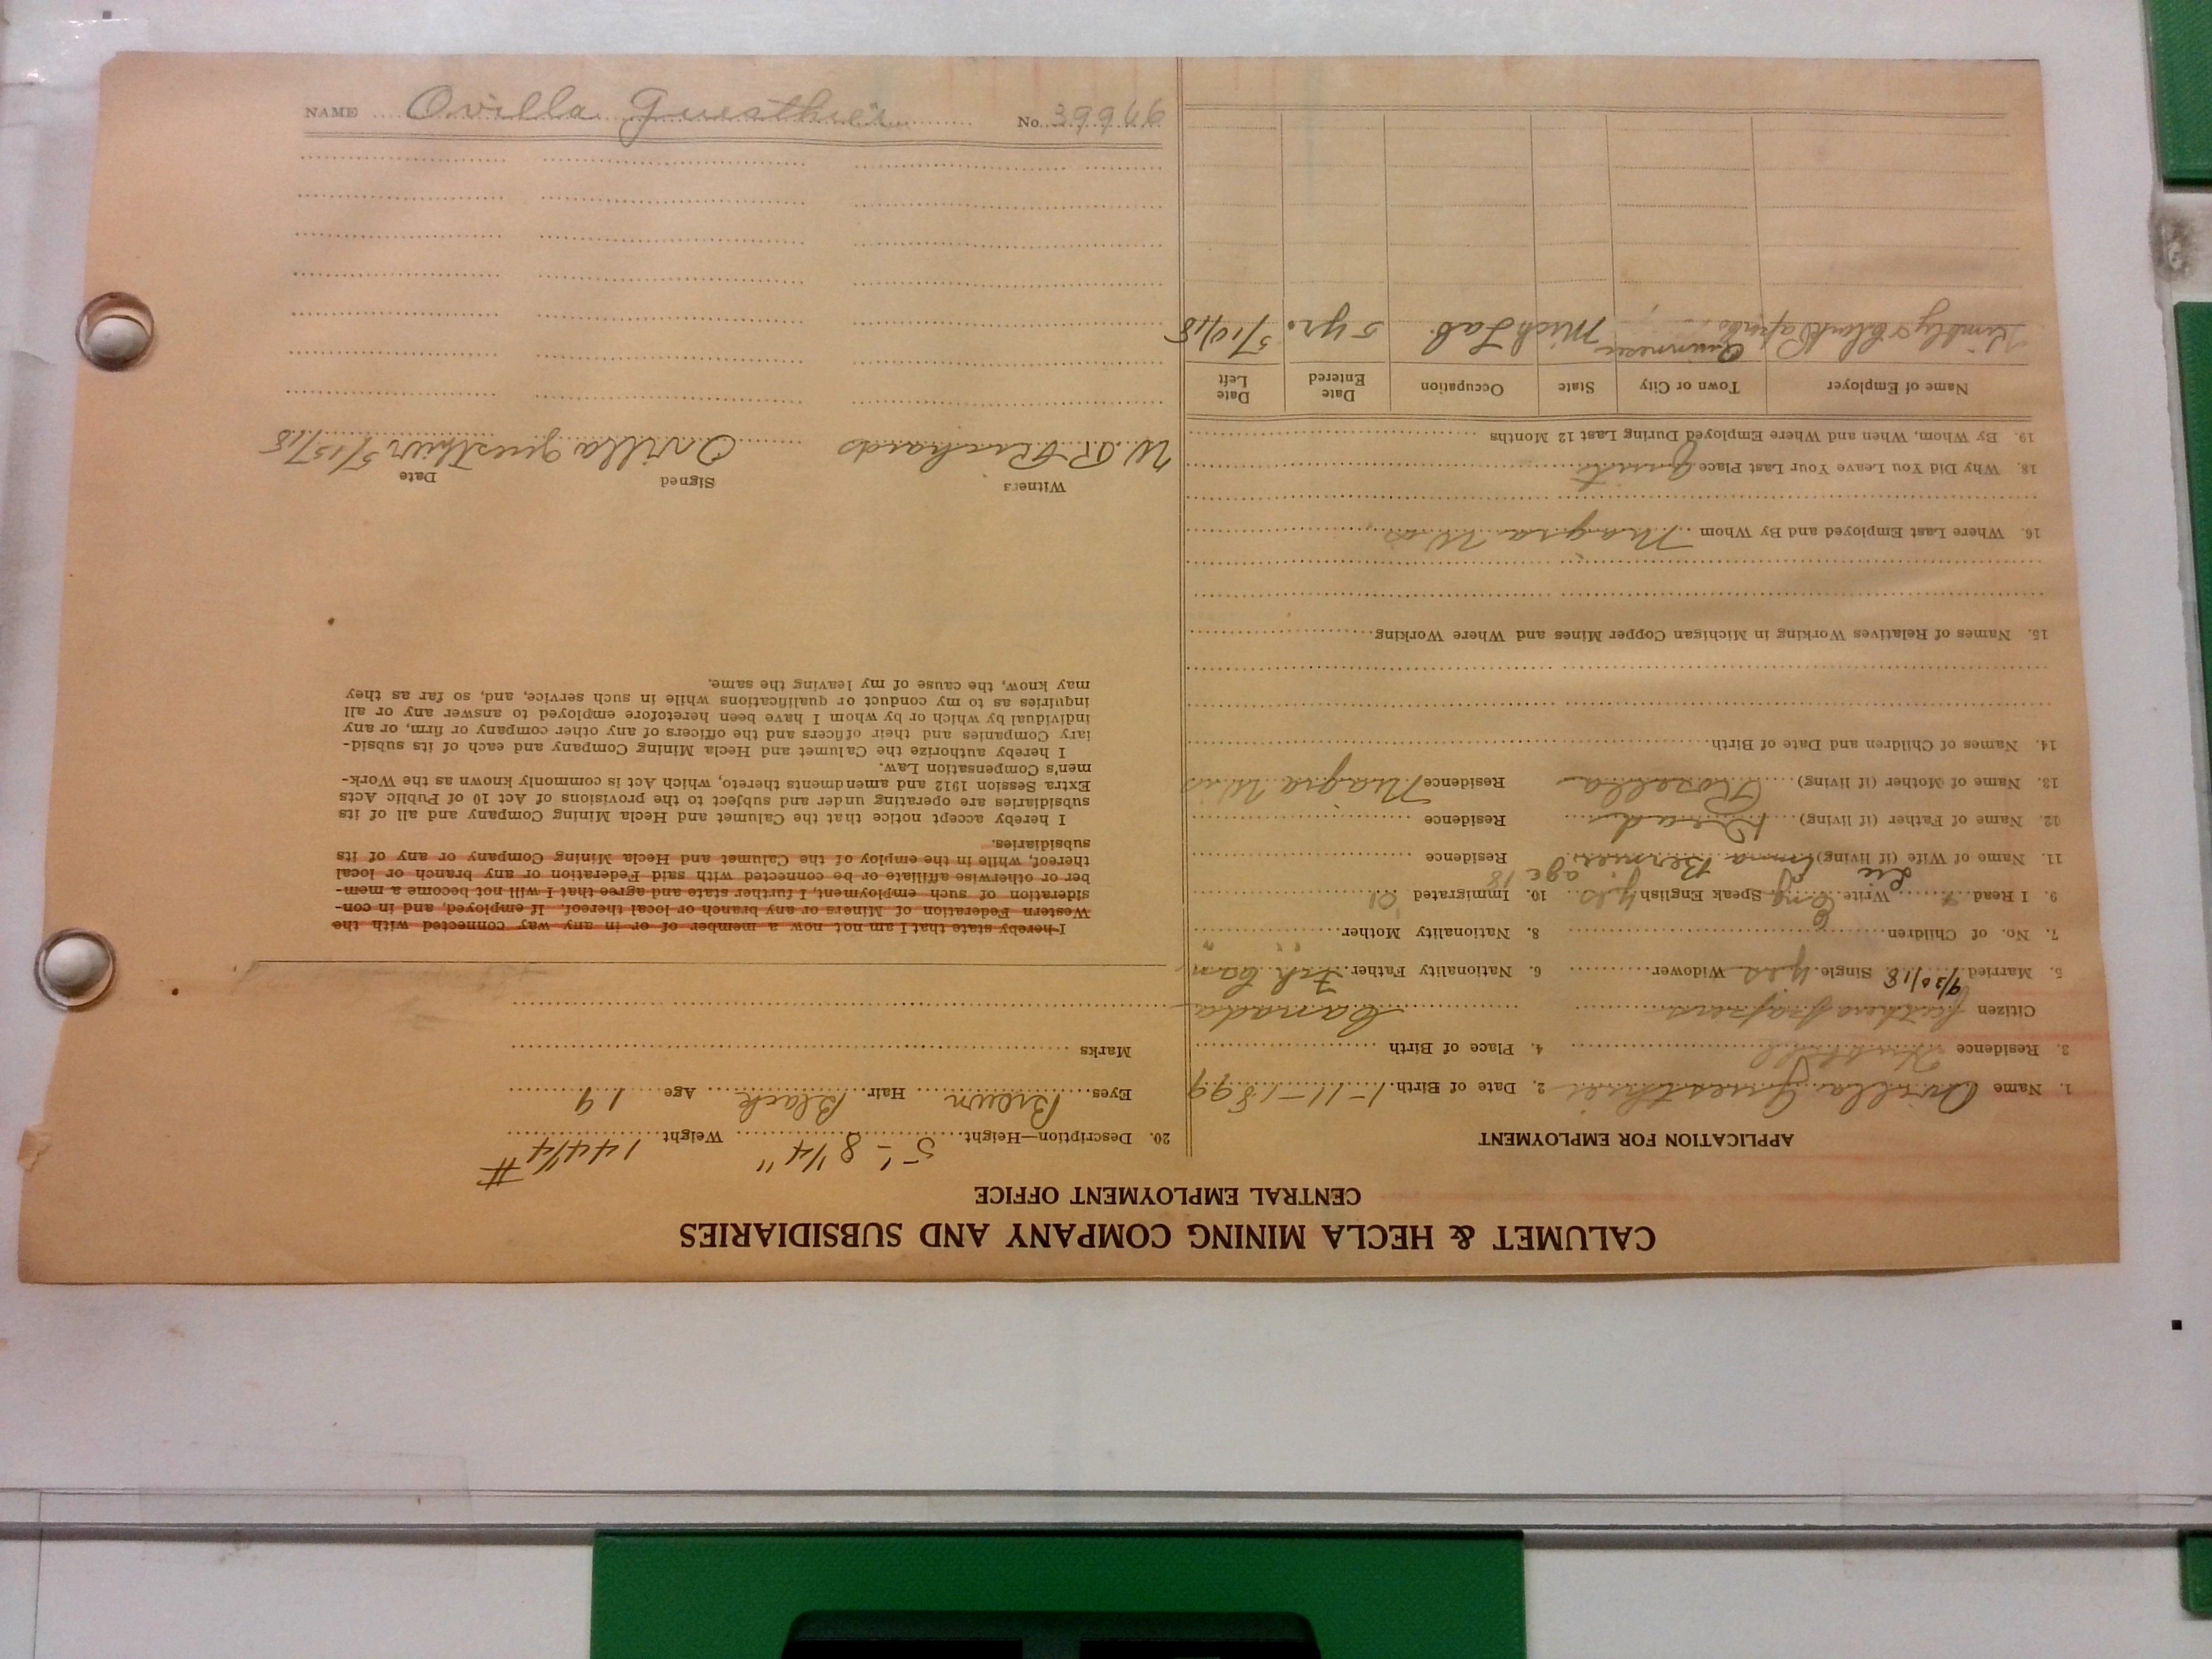 NAME Ovilla Guesthier No. 39966
CALUMET & HECLA MINING COMPANY AND SUBSIDIARIES
CENTRAL EMPLOYMENT OFFICE
APPLICATION FOR EMPLOYMENT
1. Name Ovilla Guesthier 2. Date of Birth 1-11-1899
3. Residence 4. Place of Birth
Citizen fathers papers Canada
5. Married 9/30/18 Single yes Widower 6. Nationality Father Fch Can
7. No. of Children 8. Nationality Mother " "
9. I Read Write Eng Speak English yes 10. Immigrated
11. Name of Wife (if living) Emma Bernier age 18 Residence
12. Name of Father (if living) Dead Residence
13. Name of Mother (if living) Rosella Residence Niagra Wis
14. Names of Children and Date of Birth
15. Names of Relatives Working in Michigan Copper Mines and Where Working
16. Where Last Employed and By Whom Niagra Wis
18. Why Did You Leave Your Last Place Quit
19. By Whom, When and Where Employed During Last 12 Months
Name of Employer Town or City State Occupation Date Entered Date Left
Kimbly & Clark Quinnesec Mich Lab. 5 yr. 5/10/18
20. Description—Height 5'- 8 1/4" Weight 144 1/4 #
Eyes Brown Hair Black Age 19
Marks
I hereby state that I am not now a member of or in any way connected with the
Western Federation of Miners or any branch or local thereof. If employed, and in con-
sideration of such employment, I further state and agree that I will not become a mem-
ber or otherwise affiliate or be connected with said Federation or any branch or local
thereof, while in the employ of the Calumet and Hecla Mining Company or any of its
subsidiaries.
I hereby accept notice that the Calumet and Hecla Mining Company and all of its
subsidiaries are operating under and subject to the provisions of Act 10 of Public Acts
Extra Session 1912 and amendments thereto, which Act is commonly known as the Work-
men's Compensation Law.
I hereby authorize the Calumet and Hecla Mining Company and each of its subsid-
iary Companies and their officers and the officers of any other company or firm, or any
individual by which or by whom I have been heretofore employed to answer any or all
inquiries as to my conduct or qualifications while in such service, and, so far as they
may know, the cause of my leaving the same.
Witness Signed Date
W. P. Richards Ovilla Guesthier 5/15/18